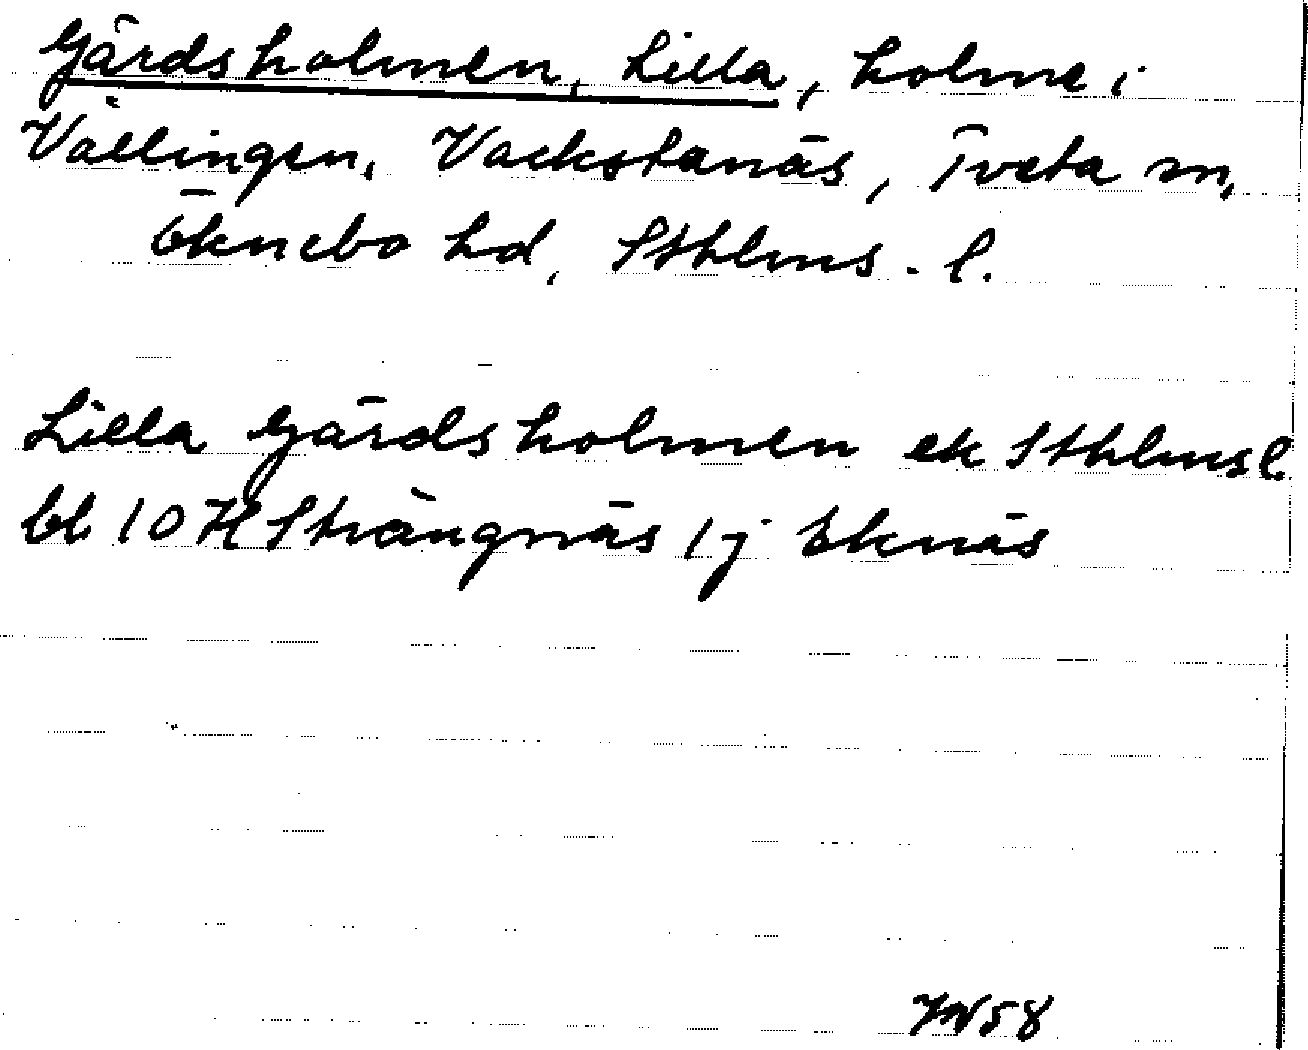 Gärdsholmen, Lilla, holme i
Vällingen, Vackstanäs, Tveta sn,
Öknebo hd, Sthlms. l.
Lilla Gärdsholmen ek Sthlms l.
bl 10 H Strängnäs 1j Eknäs
58